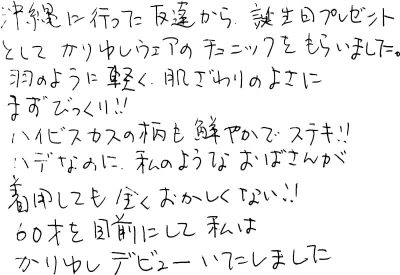 沖縄に行った友達から、誕生日プレゼント
としてかりゆしウェアのチュニックをもらいました。
羽のように軽く、肌ざわりのよさに
まずびっくり!!
ハイビスカスの柄も鮮やかでステキ!!
ハデなのに、私のようなおばさんが
着用しても全くおかしくない!!
60才を目前にして私は
かりゆしデビューいたしました